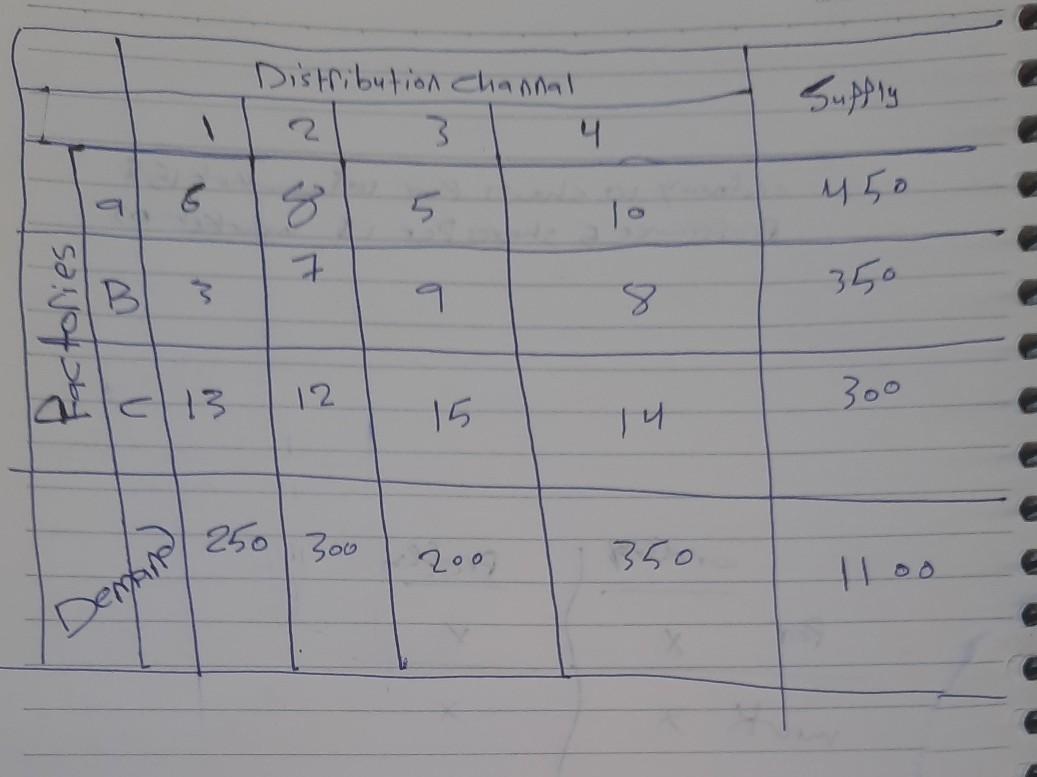 Distribution channal Supply
1 2 3 4
a 6 8 5 10 450
B 3 7 9 8 350
C 13 12 15 14 300
Factories
Demand 250 300 200 350 1100